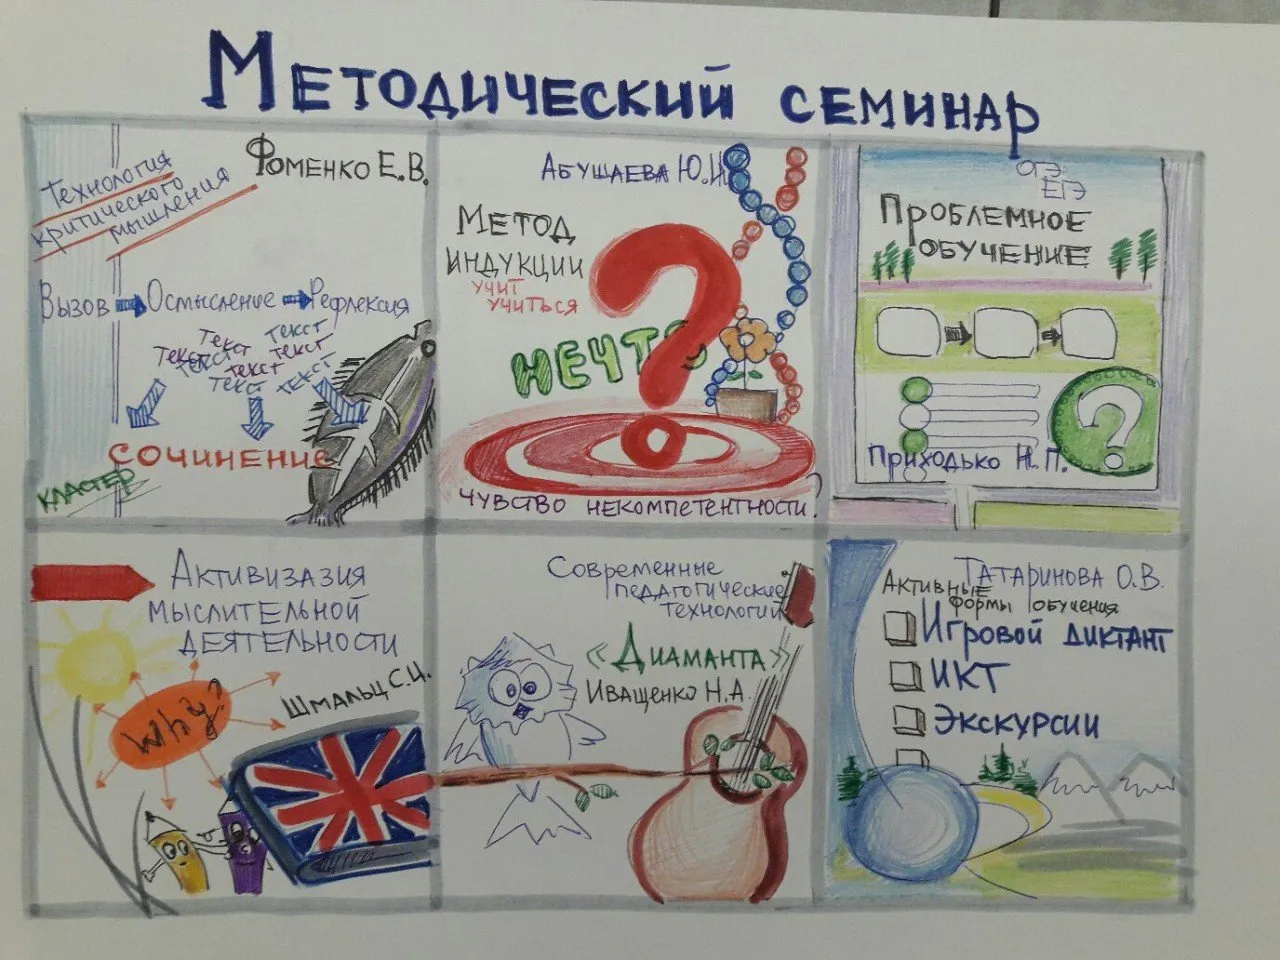 Методический семинар
Фоменко Е.В.
Технология
критического
мышления
Вызов Осмысление Рефлексия
текст текст текст
текст текст текст
текст текст текст
сочинение
кластер
Абушаева Ю.И.
Метод
индукции
учит
учиться
нечто
?
чувство некомпетентности?
ОГЭ
ЕГЭ
Проблемное
обучение
?
Приходько Н.П.
Активизазия
мыслительной
деятельности
Шмальц С.Ч.
Why?
Современные
педагогические
технологии
«Диаманта»
Иващенко Н.А.
Татаринова О.В.
Активные
формы обучения
Игровой диктант
ИКТ
Экскурсии